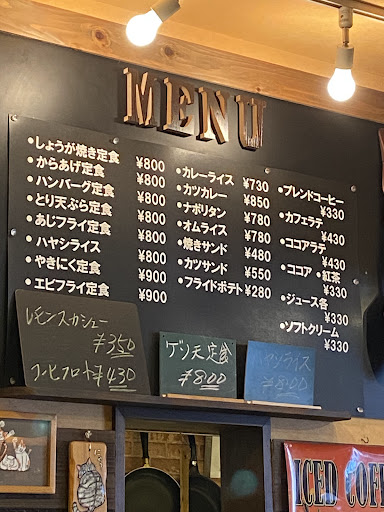 MENU
•しょうが焼き定食 ¥800
•からあげ定食 ¥800
•ハンバーグ定食 ¥800
•とり天ぷら定食 ¥800
•あじフライ定食 ¥800
•ハヤシライス ¥800
•やきにく定食 ¥900
•エビフライ定食 ¥900
•カレーライス ¥730
•カツカレー ¥850
•ナポリタン ¥780
•オムライス ¥780
•焼きサンド ¥480
•カツサンド ¥550
•フライドポテト ¥280
•ブレンドコーヒー
¥330
•カフェラテ
¥430
•ココアラテ
¥430
•ココア •紅茶
¥330
•ジュース各
¥330
•ソフトクリーム
¥330
レモンスカッシュー
¥350
コーヒフロート¥430
ゲソ天定食
¥800
ハヤシライス
¥800
ICED COFF